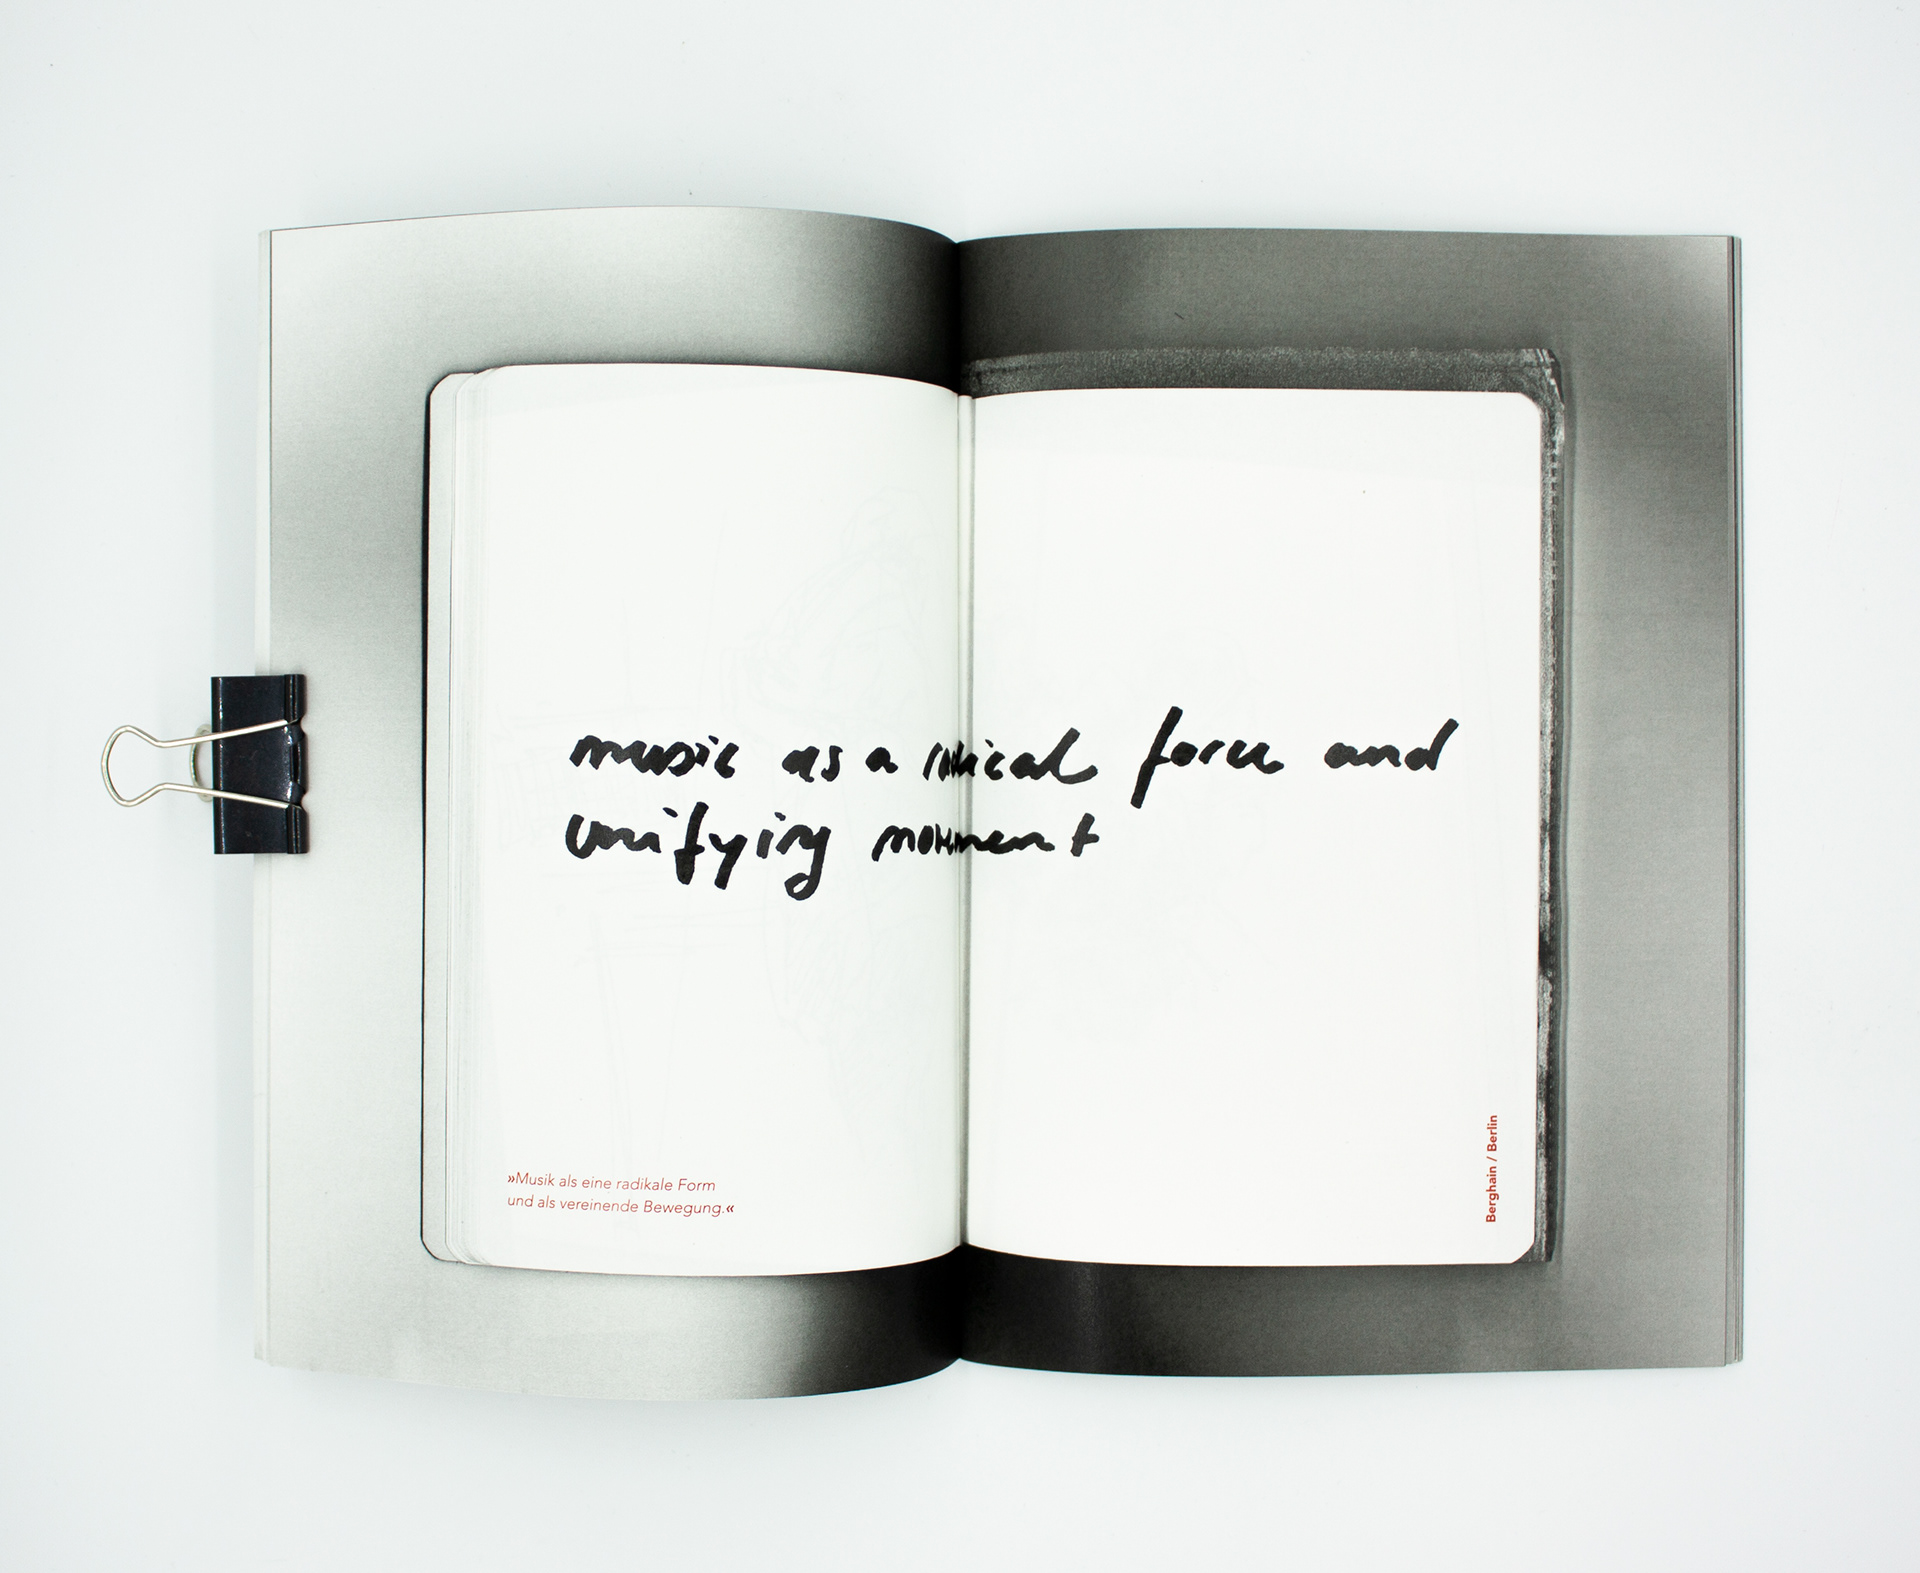 music as a radical force and
unifying movement
»Musik als eine radikale Form
und als vereinende Bewegung.«
Berghain / Berlin